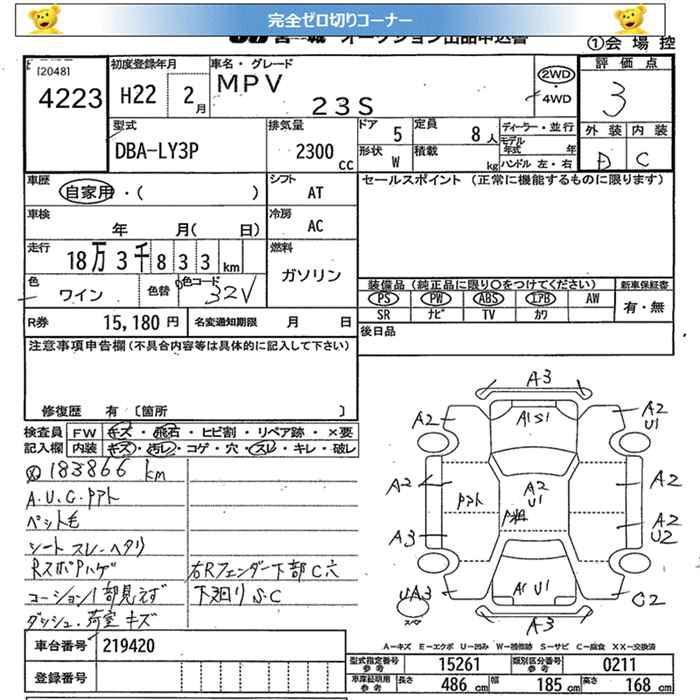 完全ゼロ切りコーナー
オークション出品申込書
①会場控
[2048]
4223
初度登録年月
H22 2月
車名・グレード
MPV
23S
2WD
4WD
評価点
3
外装 内装
D C
型式
DBA-LY3P
排気量
2300cc
ドア 5
定員 8人
形状 W
積載 kg
ディーラー・並行
モデル年式 年
ハンドル 左・右
車歴
自家用・( )
シフト
AT
セールスポイント (正常に機能するものに限ります)
車検
年 月( 日)
冷房
AC
走行
18万3千833km
燃料
ガソリン
色
ワイン
色替
色コード
32V
装備品(純正品に限り○をつけてください)
新車保証書
PS PW ABS エアB AW
SR ナビ TV カワ
有・無
R券
15,180円
名変通知期限 月 日
後日品
注意事項申告欄(不具合内容等は具体的に記入して下さい)
修復歴 有 〔箇所 〕
検査員
記入欄
FW キズ・飛石・ヒビ割・リペア跡・×要
内装 キズ・汚レ・コゲ・穴・スレ・キレ・破レ
183866 km
A.U.C.Pアト
ペット毛
シート スレ・ヘタリ
RスポPハゲ
コーション1部見えず
ダッシュ・荷室キズ
右Rフェンダー下部C穴
下廻りS.C
A3
A2
A1S1
A2
U1
A2
Pアト
A2
U1
P粗
A2
A3
A2
U2
UA3
A1U1
C2
スペア
A3
A-キズ E-エクボ U-凹み W-補修跡 S-サビ C-腐食 XX-交換済
車台番号
219420
登録番号
型式指定番号 参考
15261
類別区分番号 参考
0211
車庫証明用 参考
長さ 486cm
幅 185cm
高さ 168cm